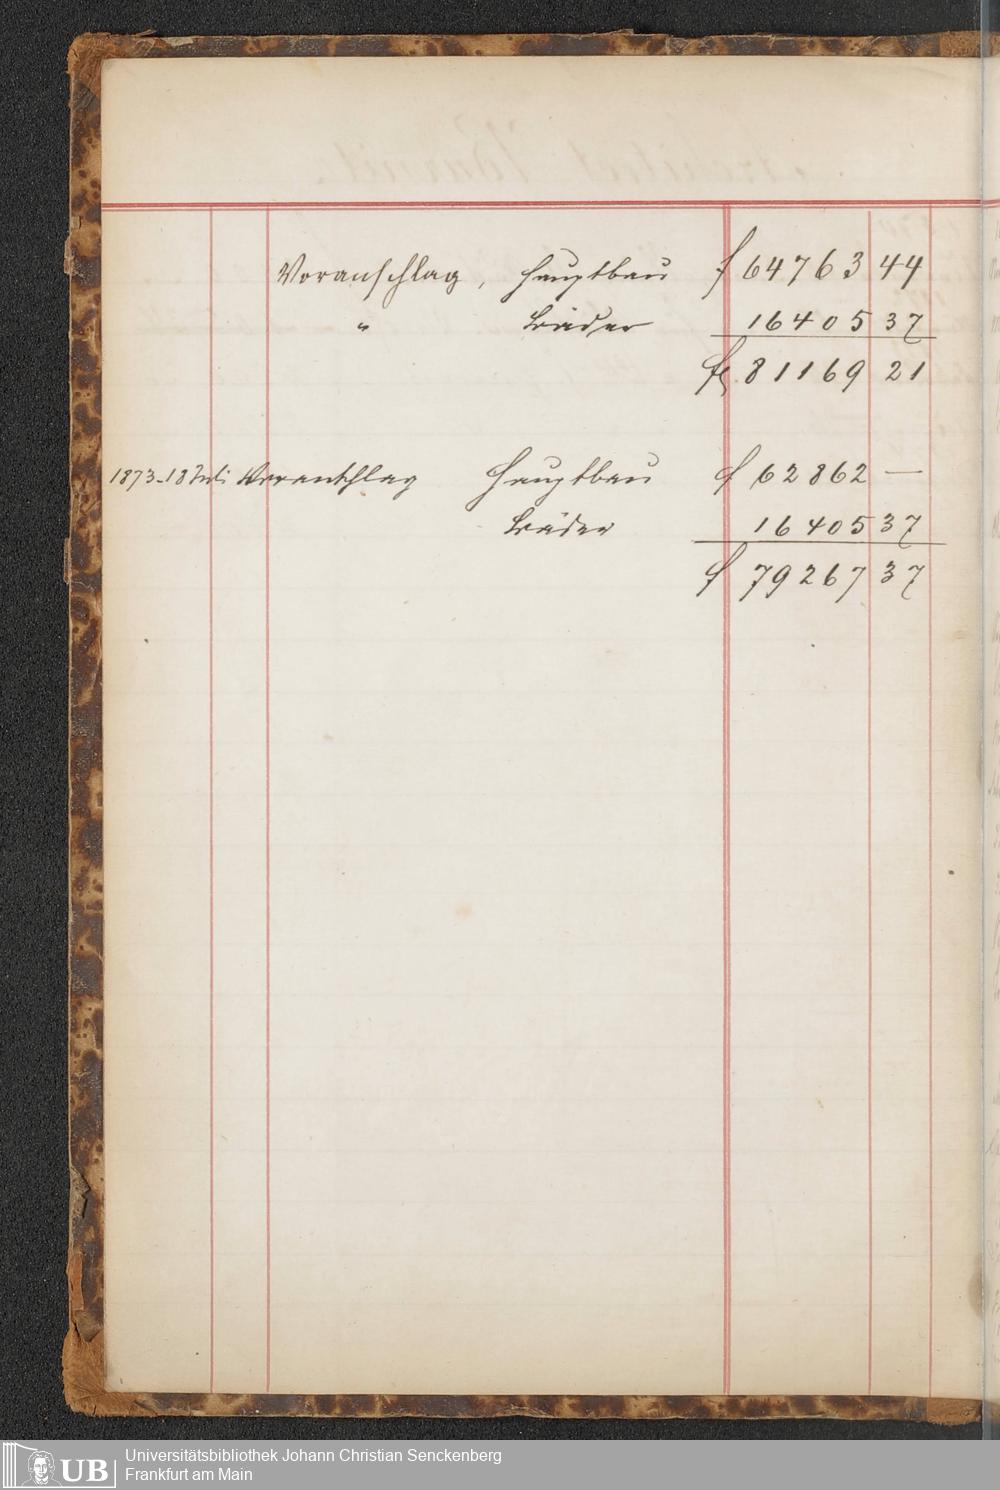 Voranschlag, Hauptbau f 64763 44
" Bäder 16405 37
fl 81169 21
1873-18 Juli Voranschlag Hauptbau f 62862 —
Bäder 16405 37
f 79267 37
UB
Universitätsbibliothek Johann Christian Senckenberg
Frankfurt am Main